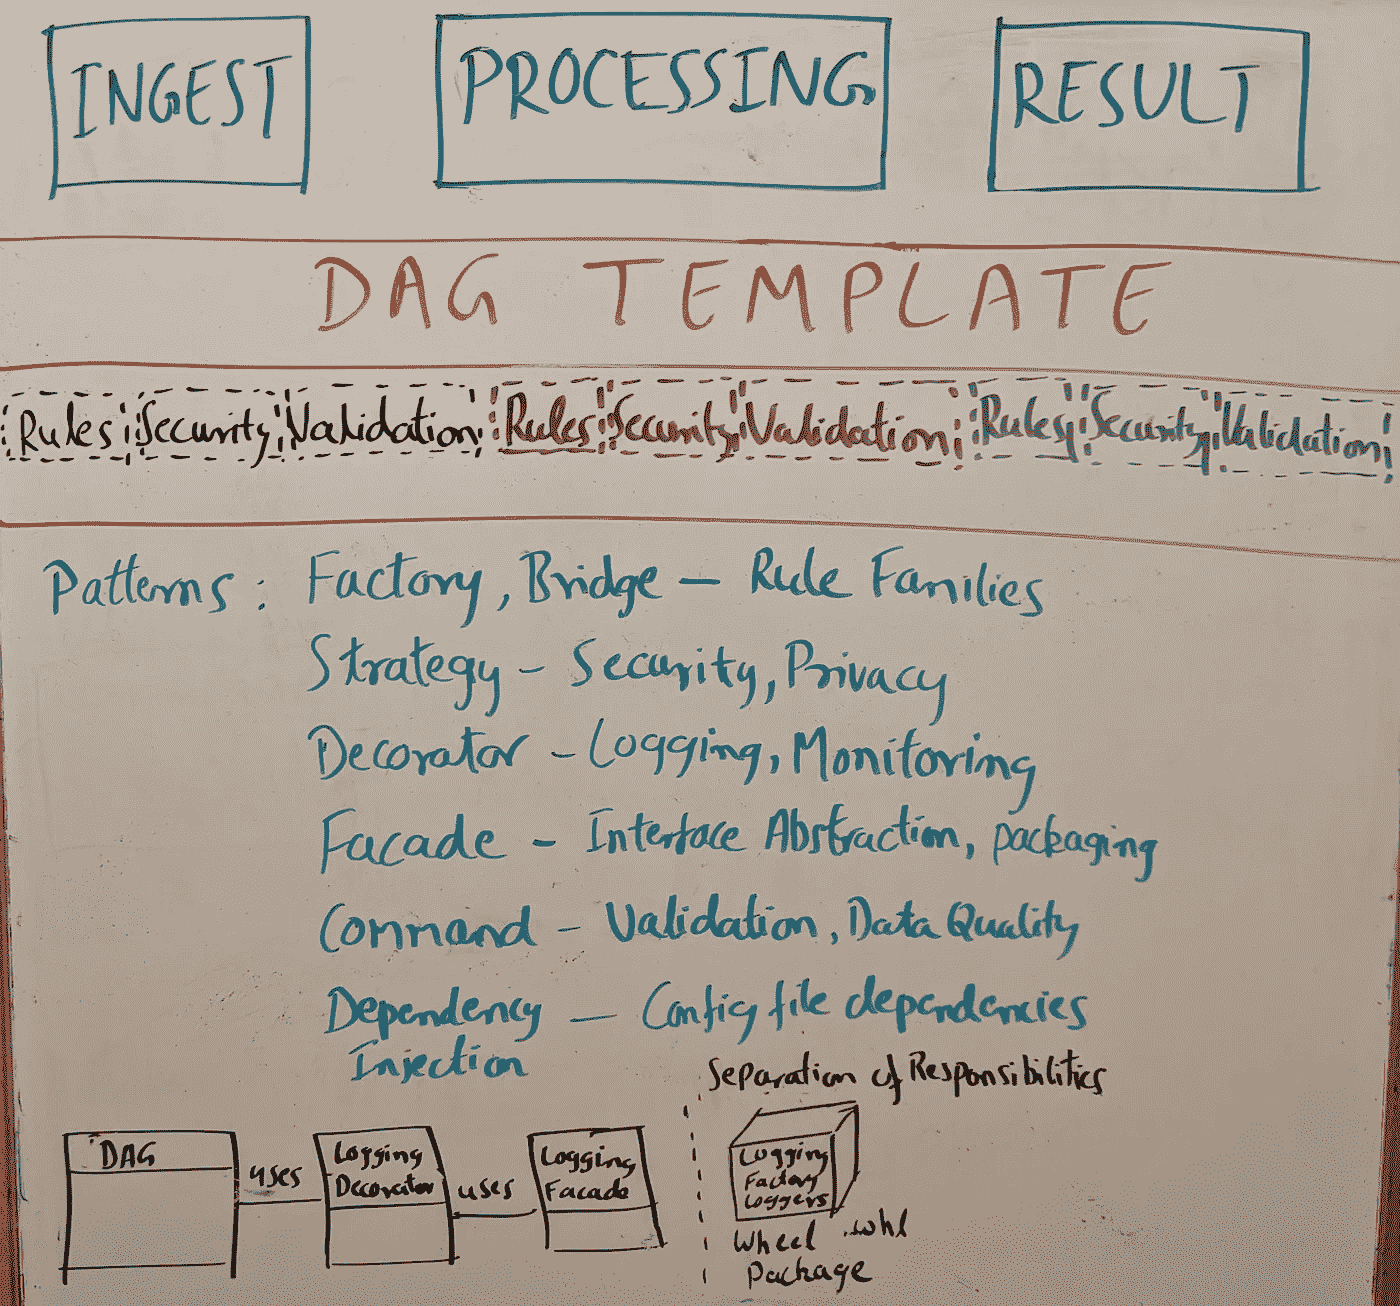 INGEST PROCESSING RESULT
DAG TEMPLATE
Rules Security Validation Rules Security Validation Rules Security Validation
Patterns : Factory, Bridge – Rule Families
Strategy – Security, Privacy
Decorator – Logging, Monitoring
Facade – Interface Abstraction, packaging
Command – Validation, Data Quality
Dependency – Config file dependencies
Injection
Separation of Responsibilities
DAG
uses
Logging
Decorator
uses
Logging
Facade
Logging
Factory
Loggers
Wheel .whl
Package